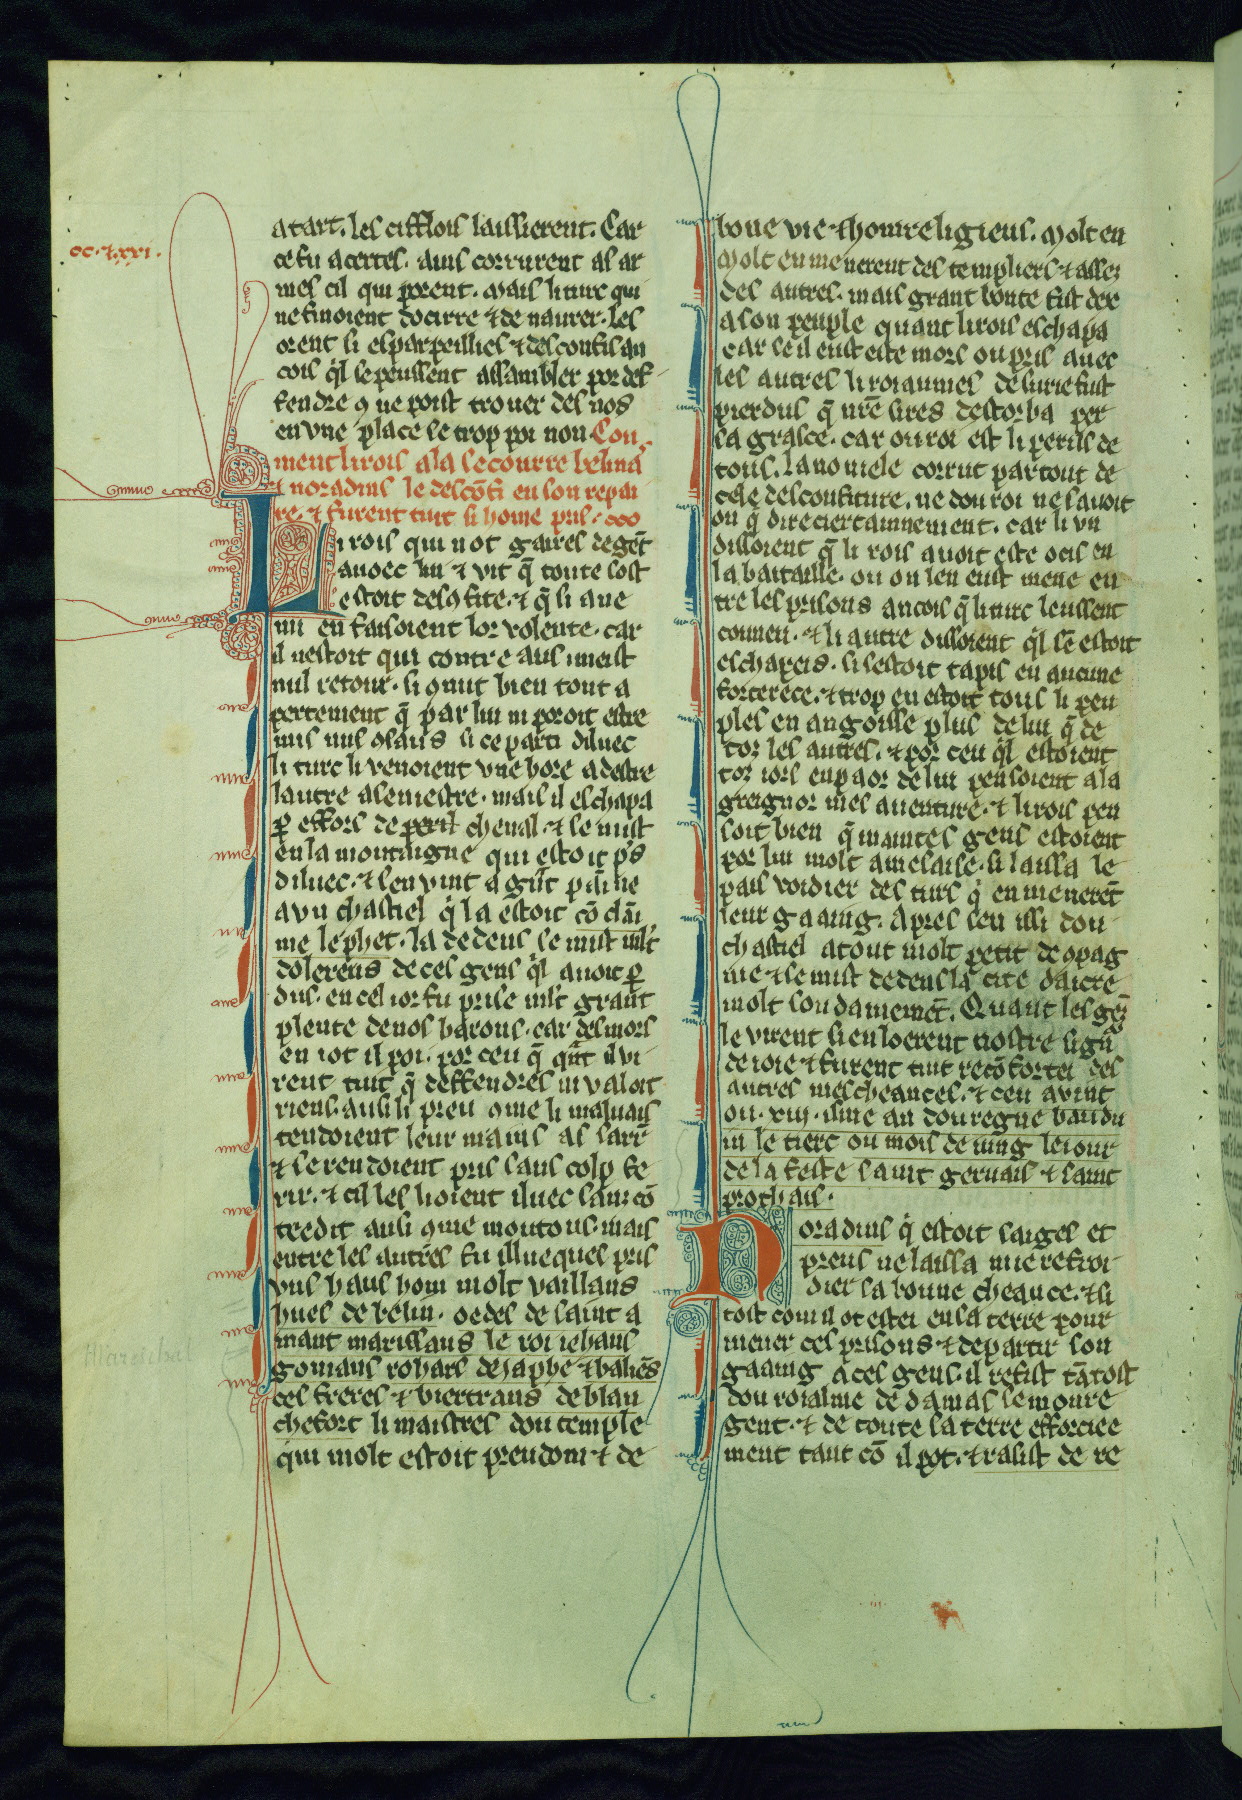 cc.⁊.xxi.
atart. les cifflois laissierent. Car
ce fu acertes. auis corrurent as ar
mes cil qui porent. Mais li turc qui
ne finoient docirre ⁊ de naurer. les
orent si esparpeilliés ⁊ desconfis an
cois q̃l se peussent assambler por def
fendre ꝯ ne poist trouer des nos
en vne place le trop poi non. Con
ment li rois ala secourre belinas
⁊ noradins le descōfi en son repai
re. ⁊ furent tuit si home pris. ccc
Li rois qui not gaires de gēt
auoec lui ⁊ vit q̃ toute sost
estoit desꝯfite. ⁊ q̃ li ane
mi en faisoient lor volente. car
il nestoit qui contre aus meist
nul retour. si ꝯnut bien tout a
pertement q̃ par lui ni poroit estre
mis nus ꝯsaus si ce parti diluec
li turc li venoient vne hore a destre
lautre a senestre. mais il eschapa
ꝑ effors de peril cheual. ⁊ se mist
en la montaigne qui estoit p̃s
diluec. ⁊ sen vint a grāt painne
a vn chastiel q̃ la estoit cō claī
me lephet. la dedens se mist mlt̃
dolerens de ces gens q̃l auoit ꝑ
dus. en cel ior fu prise mlt̃ grant
plente de nos barons. car des mors
en iot il poi. por ceu q̃ q̃nt il vi
rent tuit q̃ deffendres ni valoit
riens. ausi li preu ꝯme li maluais
tendoient leur mains as sarr̃
⁊ se rendoient pris sans colp fe
rir. ⁊ cil les lioient iluec sans cō
tredit ausi ꝯme moutons. mais
entre les autres fu illueques pris
vns haus hom molt vaillans
hues de belin. oedes de saint a
mant marissaus le roi iehans
gomans rohars de iaphe ⁊ baliēs
ces freres ⁊ biertrans de blan
chefort li maistres dou temple
qui molt estoit preudom ⁊ de
Mareschal
bone vie ⁊ hom religieus. Molt en
Molt en menerent des templiers ⁊ assei
des autres. mais grant bonte fist dex
a son peuple quant li rois eschapa
car se il eust este mors ou pris auec
les autres li roiaumes de surie fust
pierdus q̃ nr̃e sires destorba per
sa grasce. car ou roi est li perils de
tous. la nouiele corrut partout de
cele desconfiture. ne dou roi ne sauoit
on q̃ dire ciertainnement. car li vn
dissoient q̃ li rois auoit este ocis en
la bataille. ou on len eust mene en
tre les prisons ancois q̃ li turc leussent
conneu. ⁊ li autre dissoient q̃l sē estoit
eschapeis. si sestoit tapis en aucune
forterece. ⁊ trop en estoit tous li peu
ples en angoisse plus de lui q̃ de
tor les autres. ⁊ por ceu q̃l estoient
tor iors en paor de lui pensoient a la
greignor mes auenture. ⁊ li rois pen
soit bien q̃ maintes gens estoient
por lui molt amesaise. si laissa le
pais voidier des turs q̃ en menerēt
leur gaaing. Apres seu issi dou
chastiel atout molt petit de ꝯpag
nie ⁊ se mist dedens la cite dacre
molt soudainemēt. Quant les gēs
le virent si en loerent nostre signr̃
de ioie ⁊ furent tuit recōfortei des
autres mescheances. ⁊ ceu auint
ou .xiii. isme an dou regne baudu
in le tierc ou mois de iung le iour
de la feste saint geruais ⁊ saint
prothais.
Noradins q̃ estoit saiges et
preus ne laissa mie refroi
dier sa bonne cheance. ⁊ si
tost com il ot estei en la terre pour
mener ces prisons ⁊ departir son
gaaing a ces gens. il refist tātost
dou roialme de damas semonre
gent. ⁊ de toute sa terre efforciee
ment tant cō il pot. ⁊ rasist de re